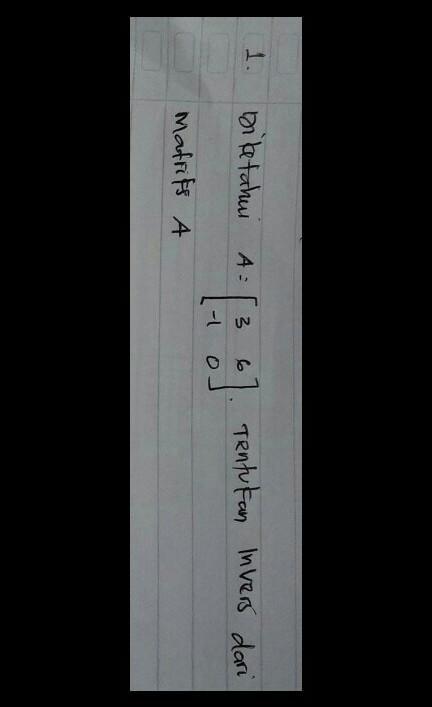 1. Diketahui A = [3 6
-1 0]. Tentukan Invers dari
Matriks A